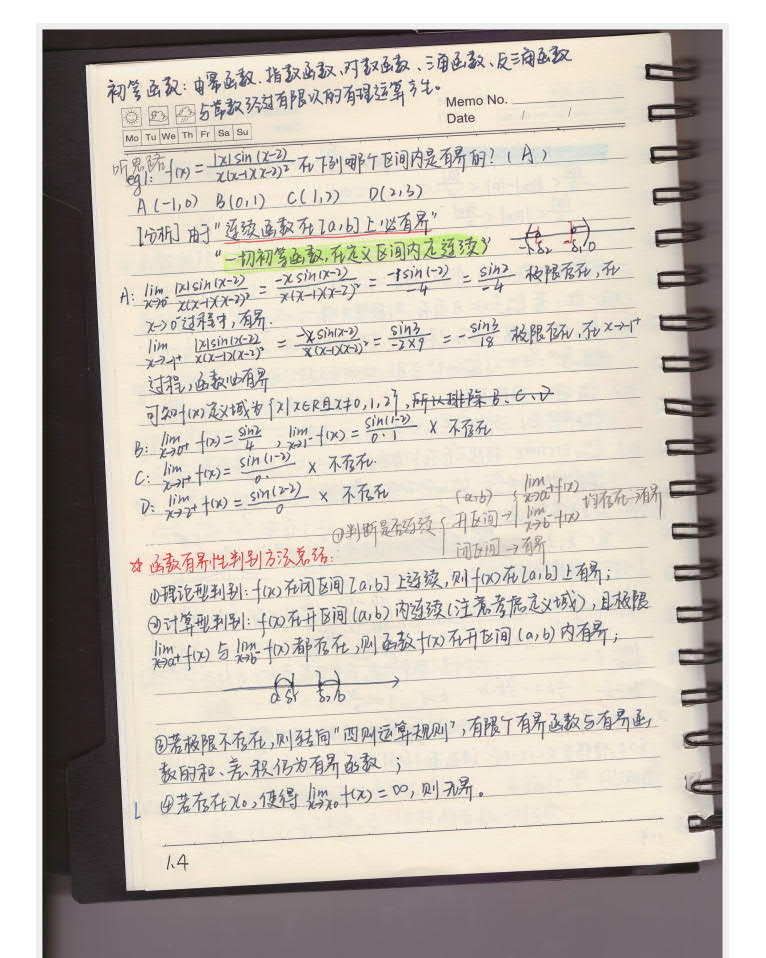 初等函数：由幂函数、指数函数、对数函数、三角函数、反三角函数
与常数经过有限次的有理运算产生。
Memo No.
Date / /
Mo Tu We Th Fr Sa Su
听思路
eg1: f(x) = |x|sin(x-2) / x(x-1)(x-2)² 在下列哪个区间内是有界的？（A）
A(-1,0) B(0,1) C(1,2) D(2,3)
[分析] 由于"连续函数在[a,b]上必有界"
"一切初等函数，在定义区间内充连续"
-1 δ₂ -δ₁ 0
A: lim x→0⁻ |x|sin(x-2) / x(x-1)(x-2)² = -x sin(x-2) / x(x-1)(x-2)² = -1 sin(-2) / -4 = sin2 / -4 极限存在，在
x→0⁻过程中，有界.
lim x→-1⁺ |x|sin(x-2) / x(x-1)(x-2)² = -x sin(x-2) / x(x-1)(x-2)² = sin3 / -2×9 = -sin3 / 18 极限存在，在x→-1⁺
过程，函数必有界
可知f(x)定义域为{x|x∈R且x≠0,1,2}，所以排除B、C、D
B: lim x→0⁺ f(x) = sin2 / 4 , lim x→1⁻ f(x) = sin(1-2) / 0·1 × 不存在
C: lim x→1⁺ f(x) = sin(1-2) / 0· × 不存在.
D: lim x→2⁺ f(x) = sin(2-2) / 0 × 不存在
①判断是否连续 { (a,b) 开区间→ { lim x→a⁺ f(x) lim x→b⁻ f(x) 均存在→有界
闭区间→有界
☆ 函数有界性判别方法总结：
①理论型判别：f(x)在闭区间[a,b]上连续，则f(x)在[a,b]上有界；
②计算型判别：f(x)在开区间(a,b)内连续(注意考虑定义域)，且极限
lim x→a⁺ f(x) 与 lim x→b⁻ f(x) 都存在，则函数f(x)在开区间(a,b)内有界；
a δ₁ δ₂ b
③若极限不存在，则转向"四则运算规则"，有限个有界函数与有界函
数的和、差、积仍为有界函数；
④若存在x₀，使得 lim x→x₀ f(x) = ∞，则无界。
1.4